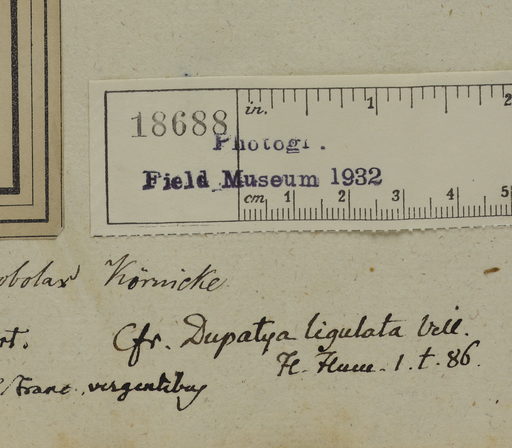 18688
in. 1 2
Photogr.
Field Museum 1932
cm 1 2 3 4 5
Körnicke
Cfr. Dupatya ligulata Vell.
Fl. Flum. 1. t. 86.
Franc. vergentibus